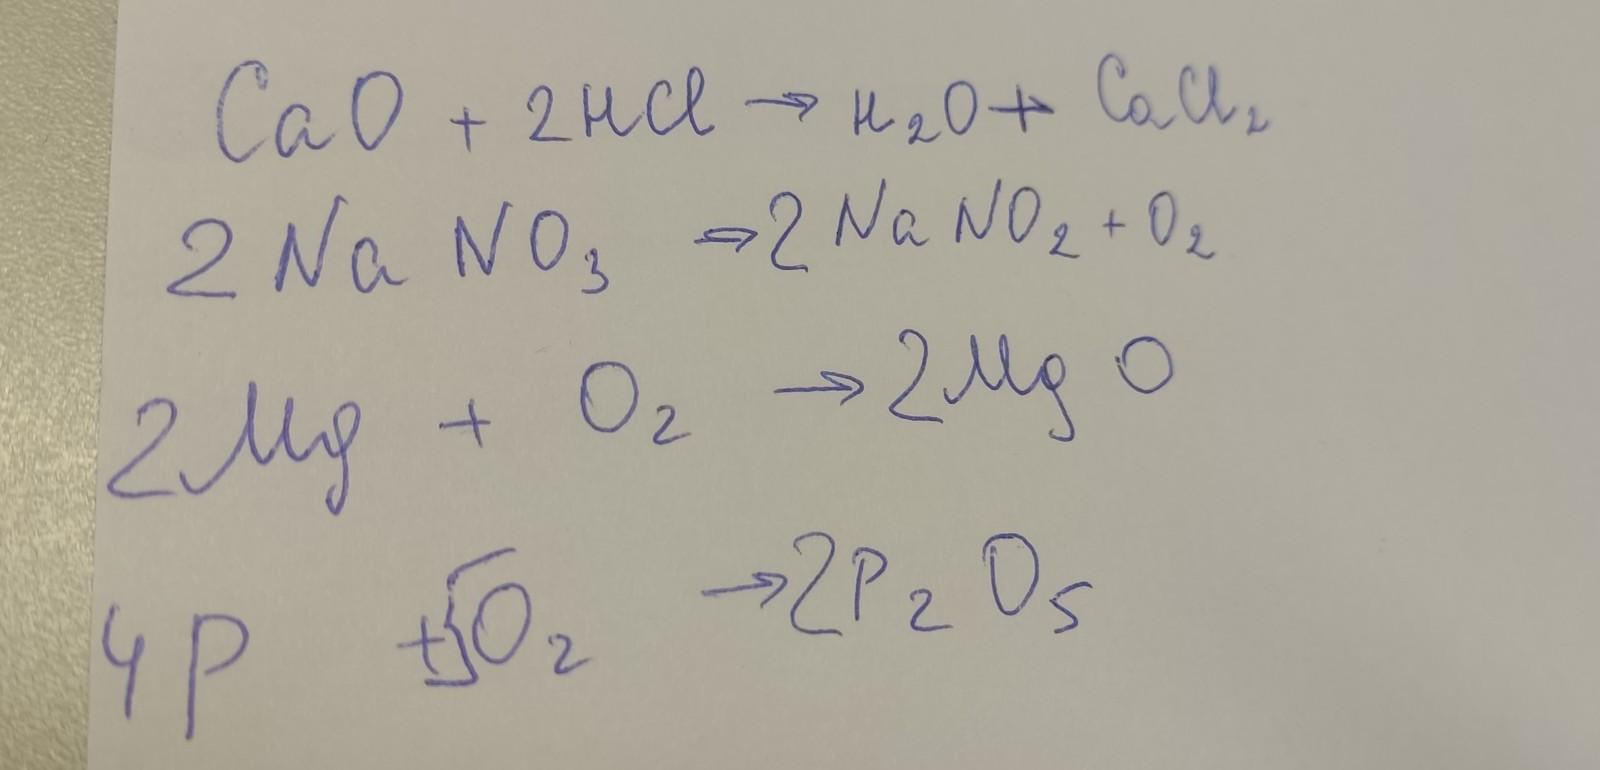 CaO + 2HCl → H₂O + CaCl₂
2NaNO₃ → 2NaNO₂ + O₂
2Mg + O₂ → 2MgO
4P + 5O₂ → 2P₂O₅